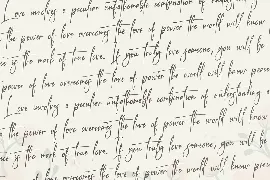 Love involves a peculiar unfathomable combination of
the power of love overcomes the love of power the world will know
is the more of true love. If you truly love someone, you will be
power of love overcomes the love of power the world will know peace
Love involves a peculiar unfathomable combination of understanding
the power of love overcomes the love of power the world will know
is the more of true love. If you truly love someone, you will be
love overcomes the love of power the world will know peace